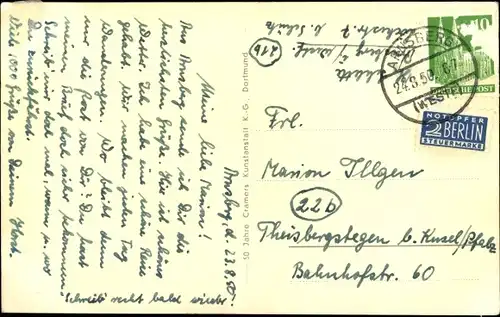 Arnsberg, d. 23.8.50!
Meine liebe Marion!
Aus Arnsberg sende ich Dir die
herzlichsten Grüße. Hier ist schönes
Wetter. Ich habe eine schöne Reise
gehabt. Wir machen jeden Tag
Wanderungen. Wo bleibt denn
nur die Post von Dir? Du hast
meinen Brief doch sicher bekommen.
Schreib' mir doch mal, wann
Du zurückfährst.
Viele 1000 Grüße von Deinem Horst.
Schreib' recht bald wieder!
50 Jahre Cramers Kunstanstalt K.-G., Dortmund
(21b)
ARNSBERG
24.8.50
(WESTF)
10
DEUTSCHE POST
NOTOPFER
2 BERLIN
STEUERMARKE
Frl.
Marion Illgen
(22b)
Theisbergstegen b. Kusel/Pfalz
Bahnhofstr. 60